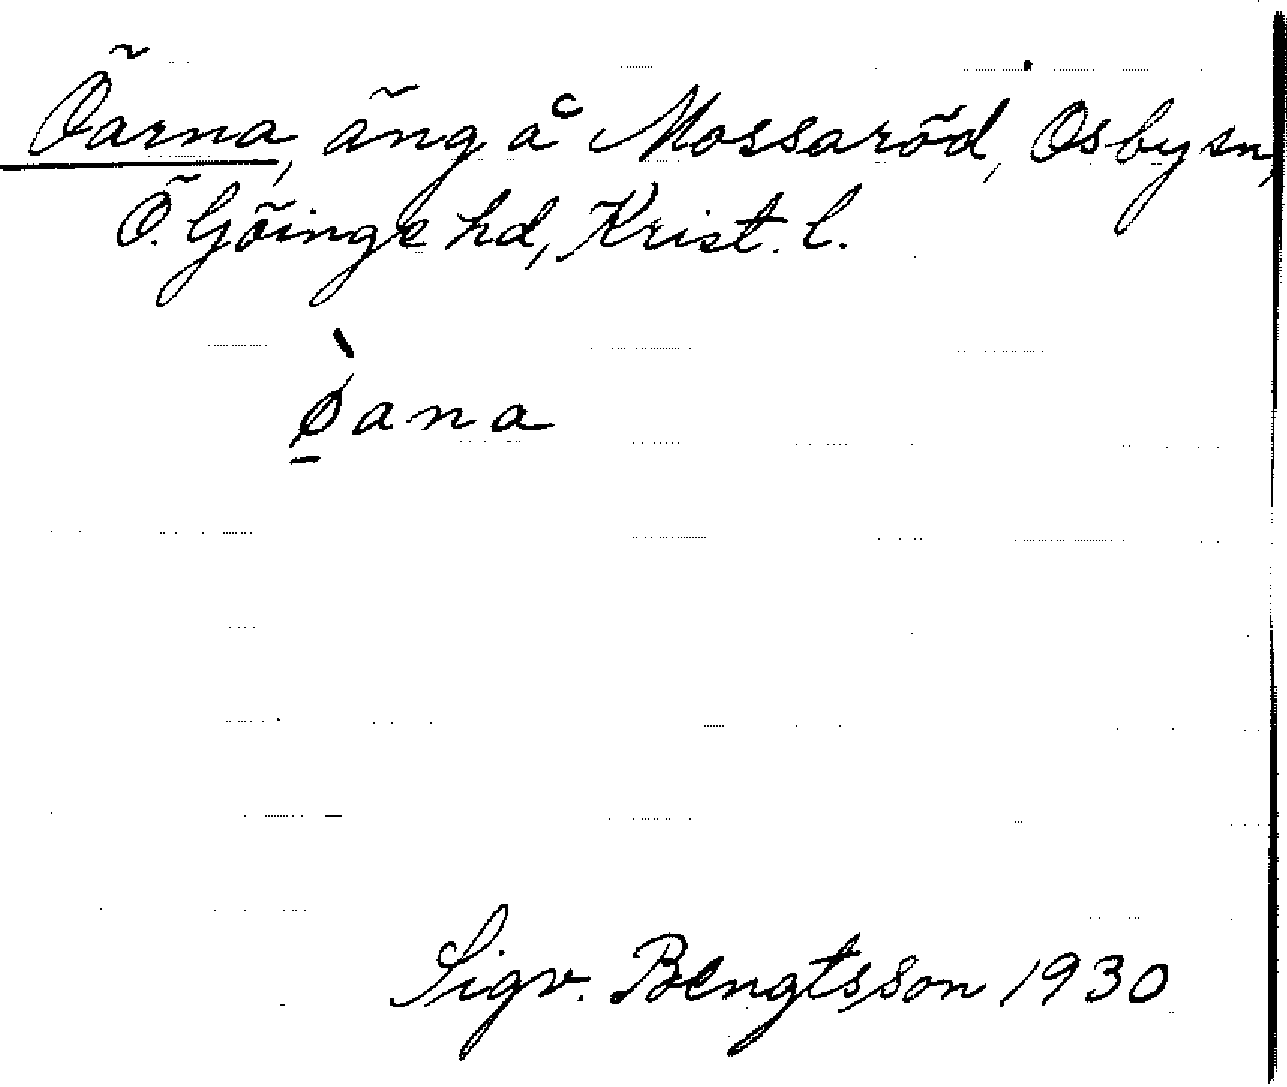 Öarna, äng å Mossaröd, Osby sn,
Ö. Göinge hd, Krist. l.
ø̱̀ana
Sigv. Bengtsson 1930